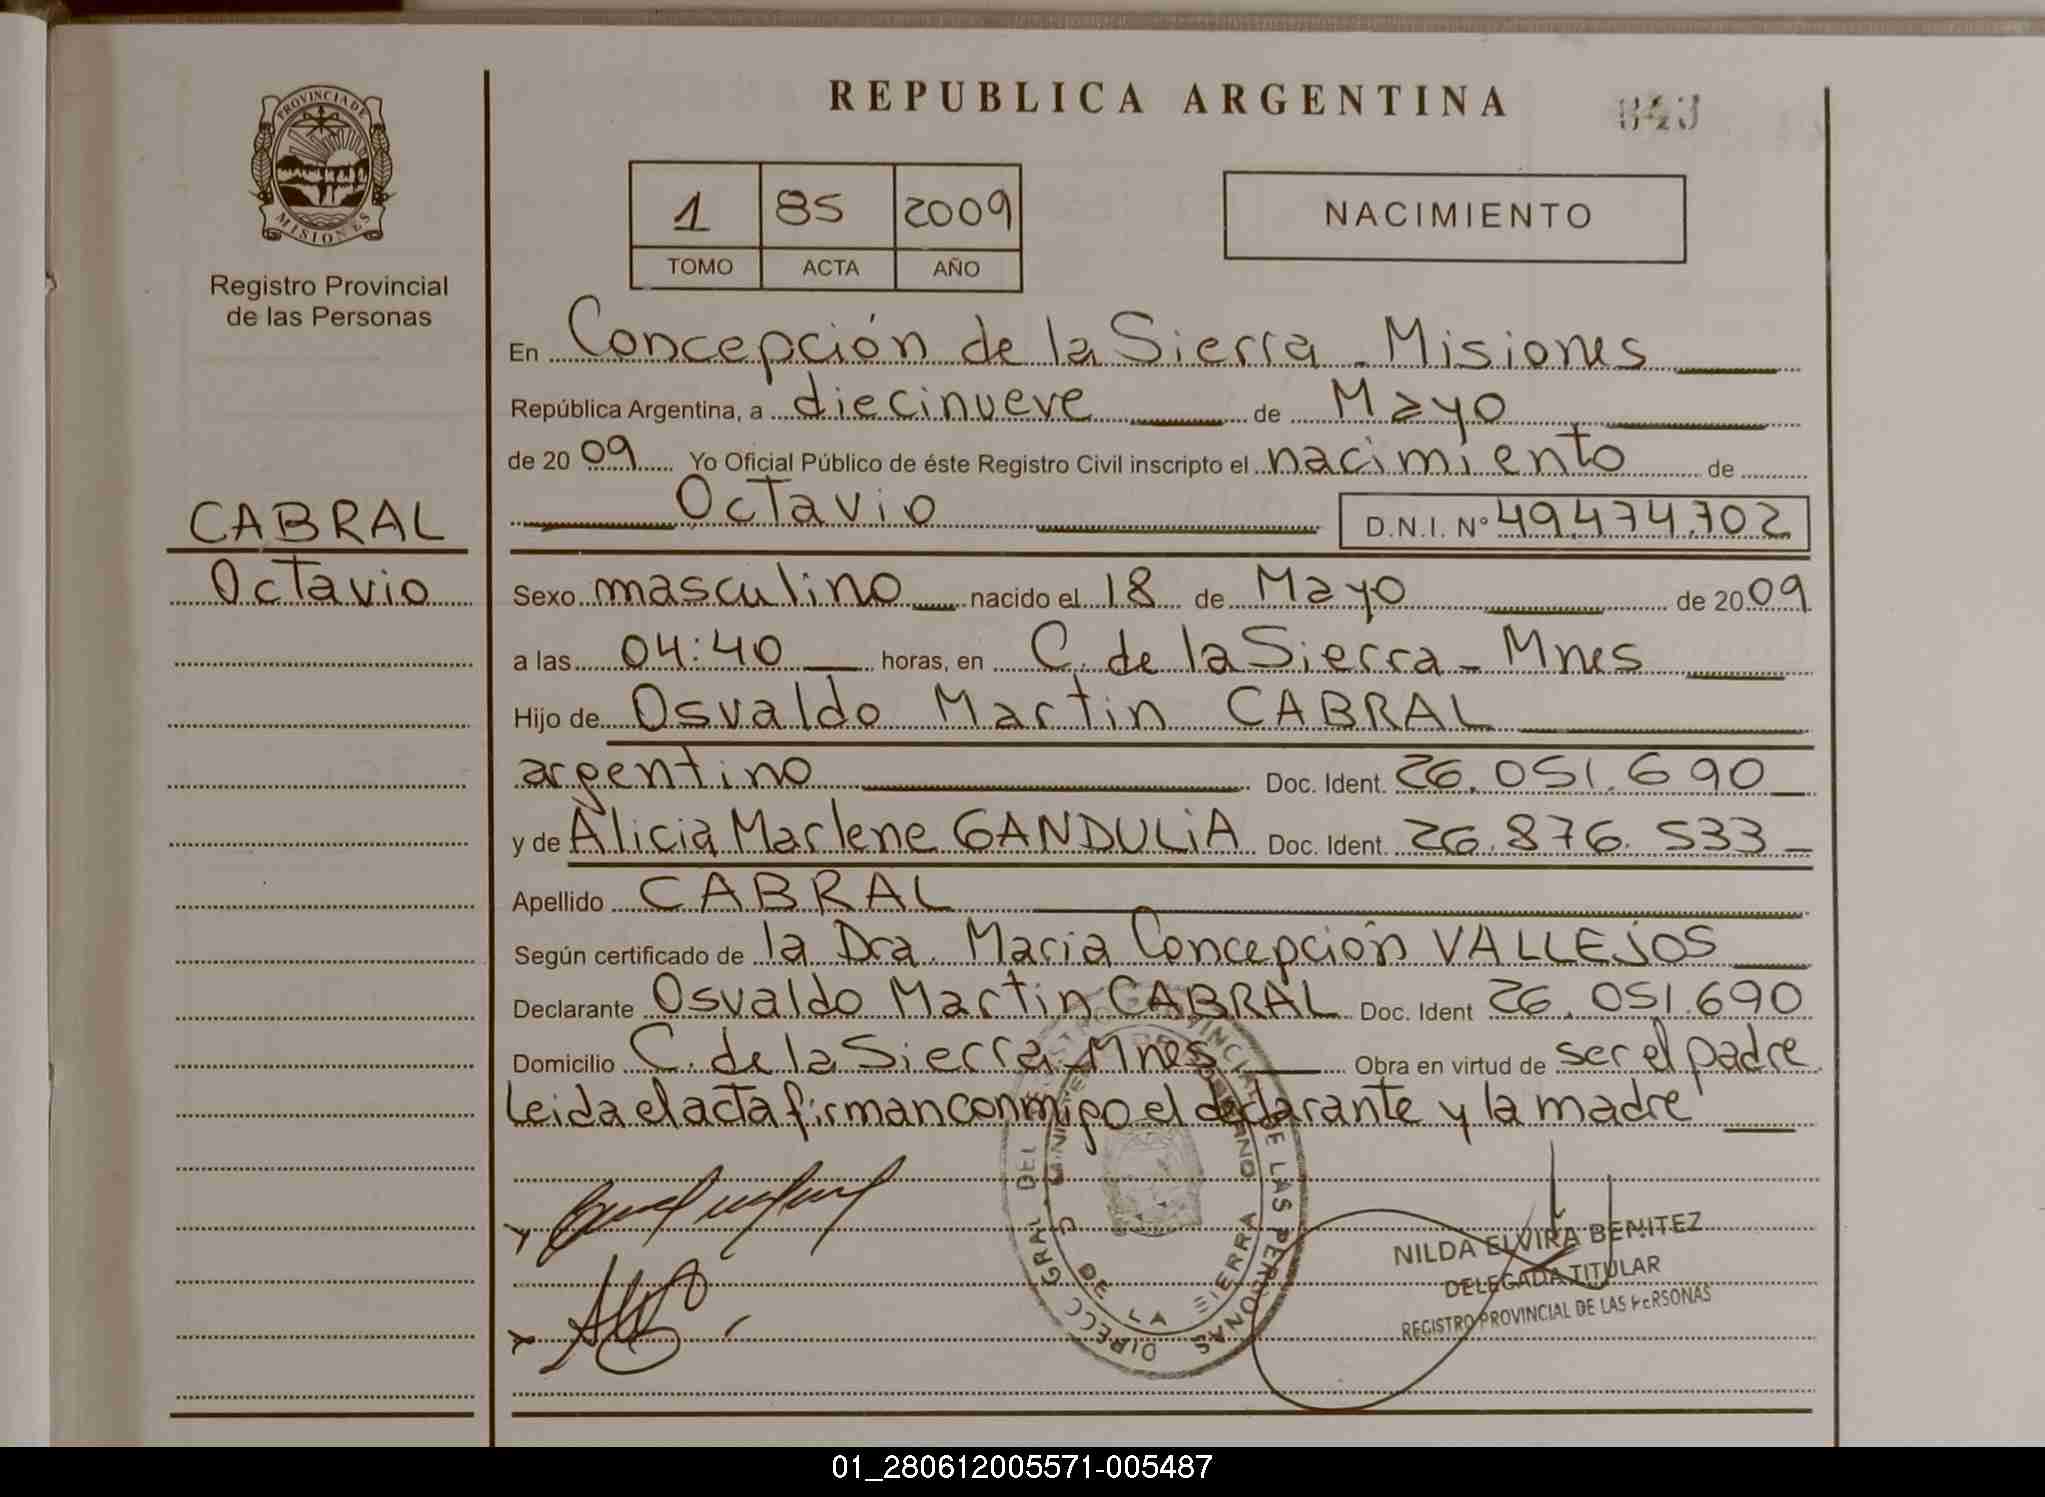 REPUBLICA ARGENTINA
343
PROVINCIA DE MISIONES
Registro Provincial
de las Personas
1 85 2009
TOMO ACTA AÑO
NACIMIENTO
En Concepción de la Sierra - Misiones
República Argentina, a diecinueve de Mayo
de 2009 Yo Oficial Público de éste Registro Civil inscripto el nacimiento de
Octavio D.N.I. N° 49.474.702
CABRAL
Octavio
Sexo masculino nacido el 18 de Mayo de 2009
a las 04:40 horas, en C. de la Sierra - Mnes
Hijo de Osvaldo Martin CABRAL
argentino Doc. Ident. 26.051.690
y de Alicia Marlene GANDULIA Doc. Ident. 26.876.533
Apellido CABRAL
Según certificado de la Dra. Maria Concepción VALLEJOS
Declarante Osvaldo Martin CABRAL Doc. Ident 26.051.690
Domicilio C. de la Sierra - Mnes Obra en virtud de ser el padre
Leida el acta firman conmigo el declarante y la madre
DIRECC GRAL DEL REGISTRO PROVINCIAL DE LAS PERSONAS
MINISTERIO DE GOBIERNO
C DE LA SIERRA
NILDA ELVIRA BENITEZ
DELEGADA TITULAR
REGISTRO PROVINCIAL DE LAS PERSONAS
01_280612005571-005487